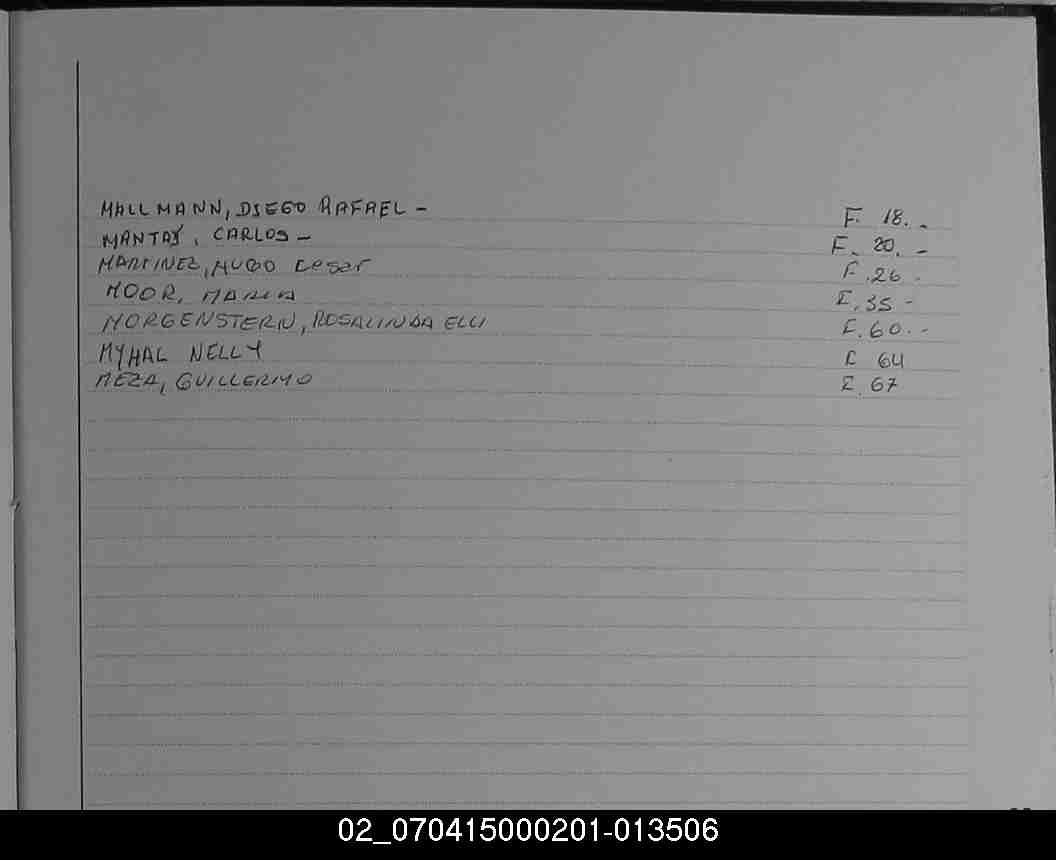 MALLMANN, DIEGO RAFAEL - F. 18. -
MANTAY, CARLOS - F. 20. -
MARTINEZ, HUGO Cesar F. 26 -
MOOR, MARIA F. 35 -
MORGENSTERN, ROSALINDA ELLI F. 60. -
MYHAL NELLY F 64
MEZA, GUILLERMO F. 67
02_070415000201-013506